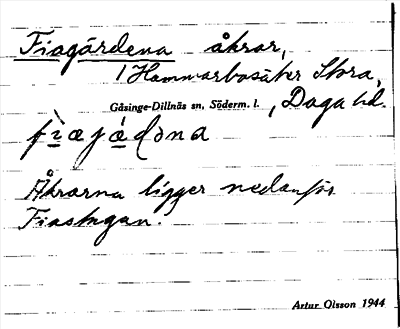 Fiagärdena åkrar,
1 Hammarbosäter Stora,
Gåsinge-Dillnäs sn, Söderm. l., Daga hd.
fìæjá̱dəna
Åkrarna ligger nedanför
Fiastugan.
Artur Olsson 1944